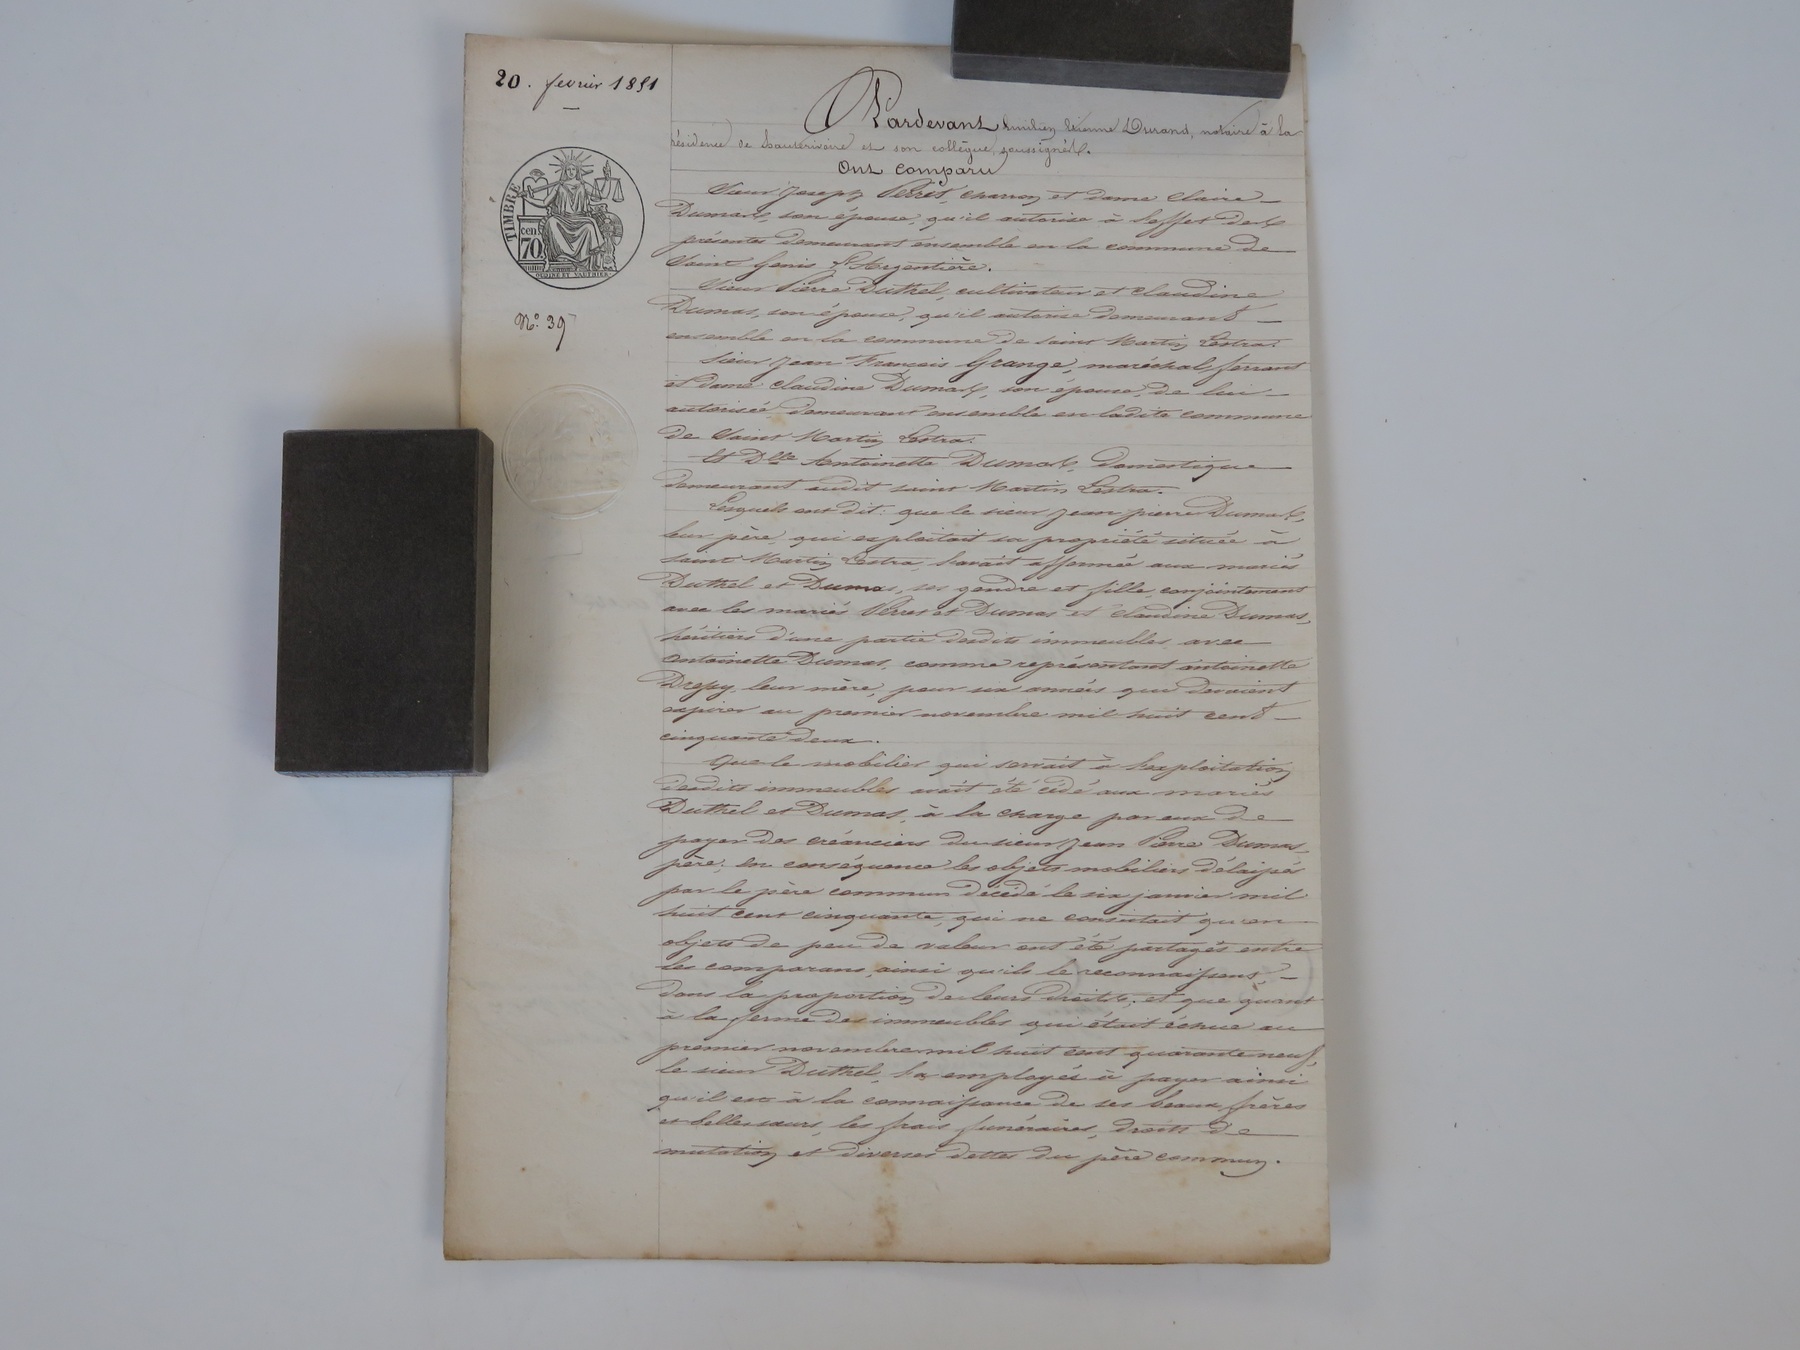 20. fevrier 1851
TIMBRE
cen.
70
N.º 39
Pardevant Emilien Etienne Durand, notaire à la
résidence de hauterivoire et son collègue, soussignés.
Ont comparu
Sieur Joseph Perret, charron et dame Claire
Dumas, son épouse, qu'il autorise à l'effet des
présentes demeurant ensemble en la commune de
Saint Genis l'Argentière.
Sieur Pierre Duthel, cultivateur et Claudine
Dumas, son épouse, qu'il autorise demeurant
ensemble en la commune de Saint Martin Lestra.
Sieur Jean François Grange, maréchal ferrant
et dame Claudine Dumas, son épouse, de lui
autorisée, demeurant ensemble en ladite commune
de Saint Martin Lestra.
Et Dlle Antoinette Dumas, domestique
demeurant audit saint Martin Lestra.
Lesquels ont dit: que le sieur Jean pierre Dumas,
leur père, qui exploitait sa propriété située à
saint Martin Lestra, l'avait affermée aux mariés
Duthel et Dumas, ses gendre et fille, conjointement
avec les mariés Perret et Dumas et Claudine Dumas,
héritiers d'une partie desdits immeubles, avec
antoinette Dumas, comme représentant antoinette
leur mère, pour six années qui devaient
expirer au premier novembre mil huit cent
cinquante deux.
Que le mobilier qui servait à l'exploitation
desdits immeubles avait été cédé aux mariés
Duthel et Dumas, à la charge par eux de
payer des créanciers du sieur Jean Pierre Dumas,
père; en conséquence les objets mobiliers délaissés
par le père commun décédé le six janvier mil
huit cent cinquante, qui ne consistait qu'en
objets de peu de valeur ont été partagés entre
les comparans, ainsi qu'ils le reconnaissent,
dans la proportion de leurs droits; et que quant
à la ferme des immeubles qui était échue au
premier novembre mil huit cent quarante neuf,
le sieur Duthel, l'a employée à payer ainsi
qu'il est à la connaissance de ses beaux frères
et belles sœurs, les frais funéraires, droits de
mutation et diverses dettes du père commun.